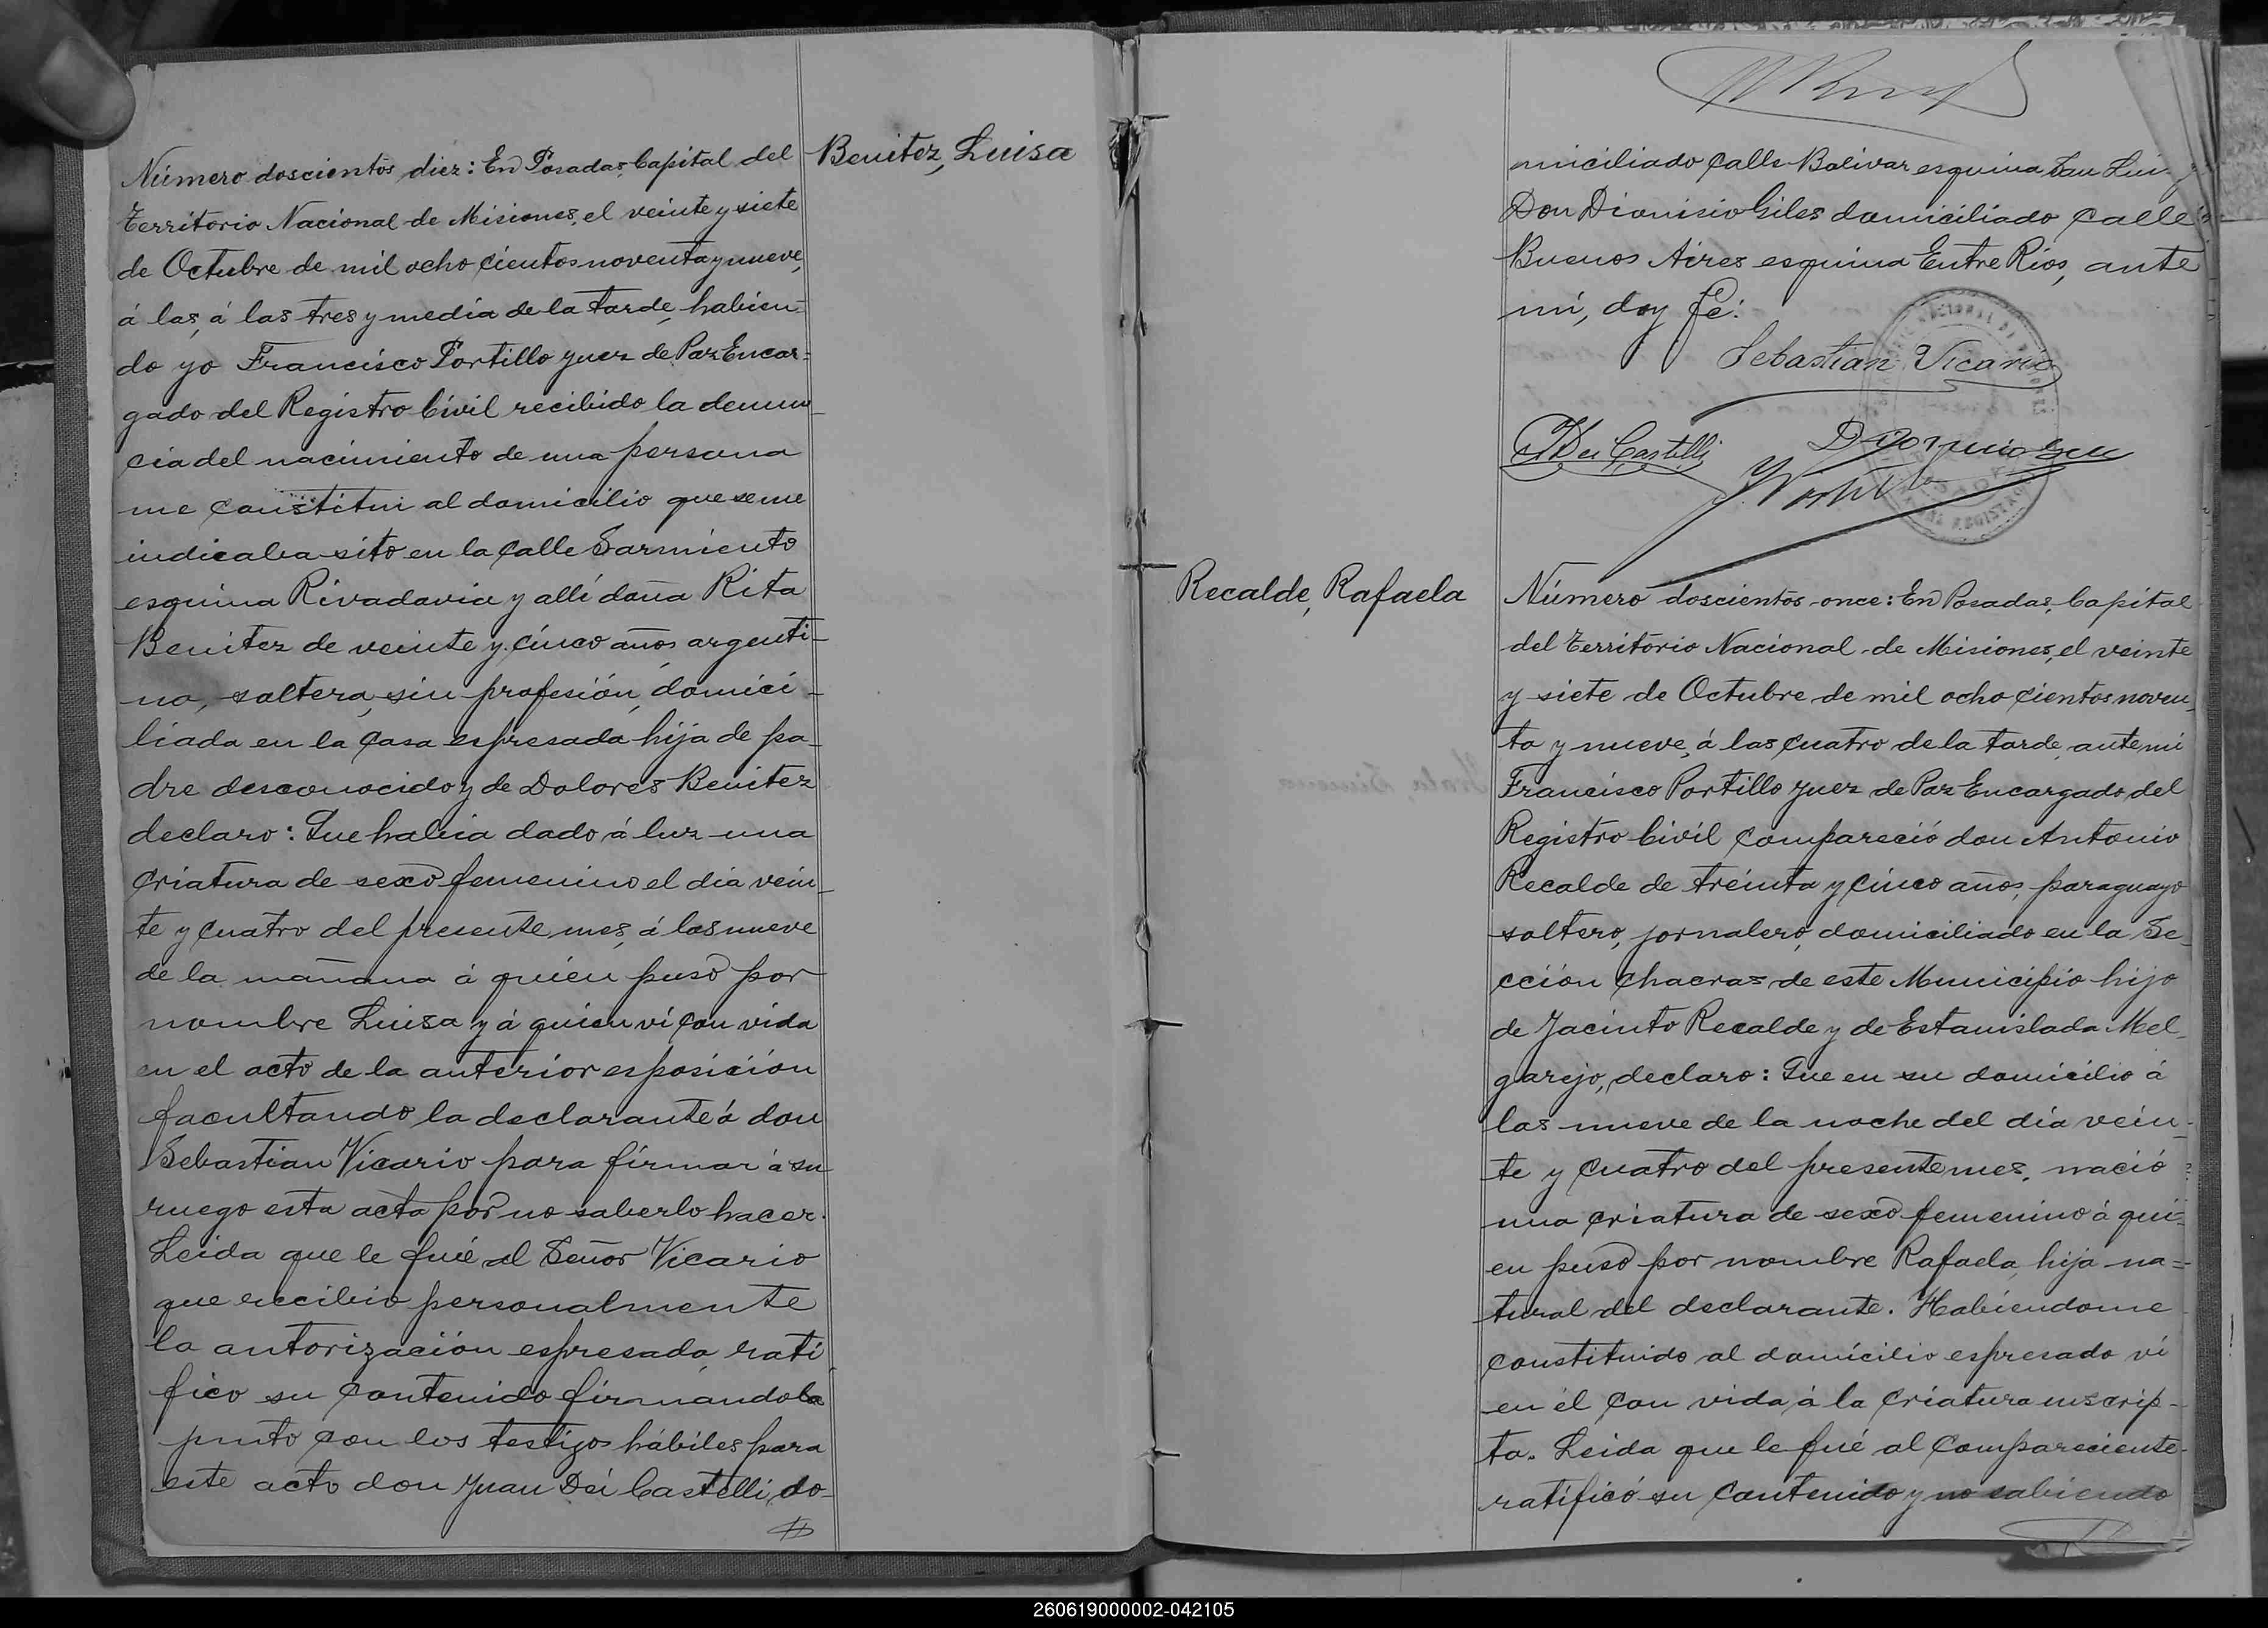 Benitez, Luisa
Número doscientos diez: En Posadas, Capital del
Territorio Nacional de Misiones, el veinte y siete
de Octubre de mil ocho cientos noventa y nueve,
á las, á las tres y media de la tarde, habien-
do yo Francisco Portillo Juez de Paz Encar-
gado del Registro Civil recibido la denun-
cia del nacimiento de una persona
me constitui al domicilio que se me
indicaba sito en la calle Sarmiento
esquina Rivadavia y allí doña Rita
Benitez de veinte y cinco años, argenti-
na, soltera, sin profesión, domici-
liada en la casa espresada hija de pa-
dre desconocido y de Dolores Benitez
declaro: Que habia dado á luz una
criatura de sexo femenino el dia vein-
te y cuatro del presente mes, á las nueve
de la mañana á quien puso por
nombre Luisa y á quien ví con vida
en el acto de la anterior esposición
facultando la declarante á don
Sebastian Vicario para firmar á su
ruego esta acta por no saberlo hacer.
Leida que le fué al Señor Vicario
que recibio personalmente
la autorización espresada, rati
fico su contenido firmandola
junto con los testigos hábiles para
este acto don Juan Dei Castelli, do-
miciliado calle Bolivar esquina San Luis y
Don Dionisio Giles domiciliado calle
Buenos Aires esquina Entre Rios, ante
mí, doy fé:
Sebastian Vicario
J Dei Castelli
Recalde, Rafaela
Número doscientos once: En Posadas, Capital
del Territorio Nacional de Misiones, el veinte
y siete de Octubre de mil ocho cientos noven-
ta y nueve, á las cuatro de la tarde, ante mí
Francisco Portillo Juez de Paz Encargado del
Registro Civil compareció don Antonio
Recalde de treinta y cinco años, paraguayo
soltero, jornalero, domiciliado en la Se-
cción chacras de este Municipio hijo
de Jacinto Recalde y de Estanislada Mel-
garejo, declaro: Que en su domicilio á
las nueve de la noche del día vein-
te y cuatro del presente mes, nació
una criatura de sexo femenino á qui-
en puso por nombre Rafaela, hija na=
tural del declarante. Habiendome
constituido al domicilio espresado ví
en él con vida á la criatura inscrip-
ta. Leida que le fué al compareciente
ratificó su contenido y no sabiendo
260619000002-042105